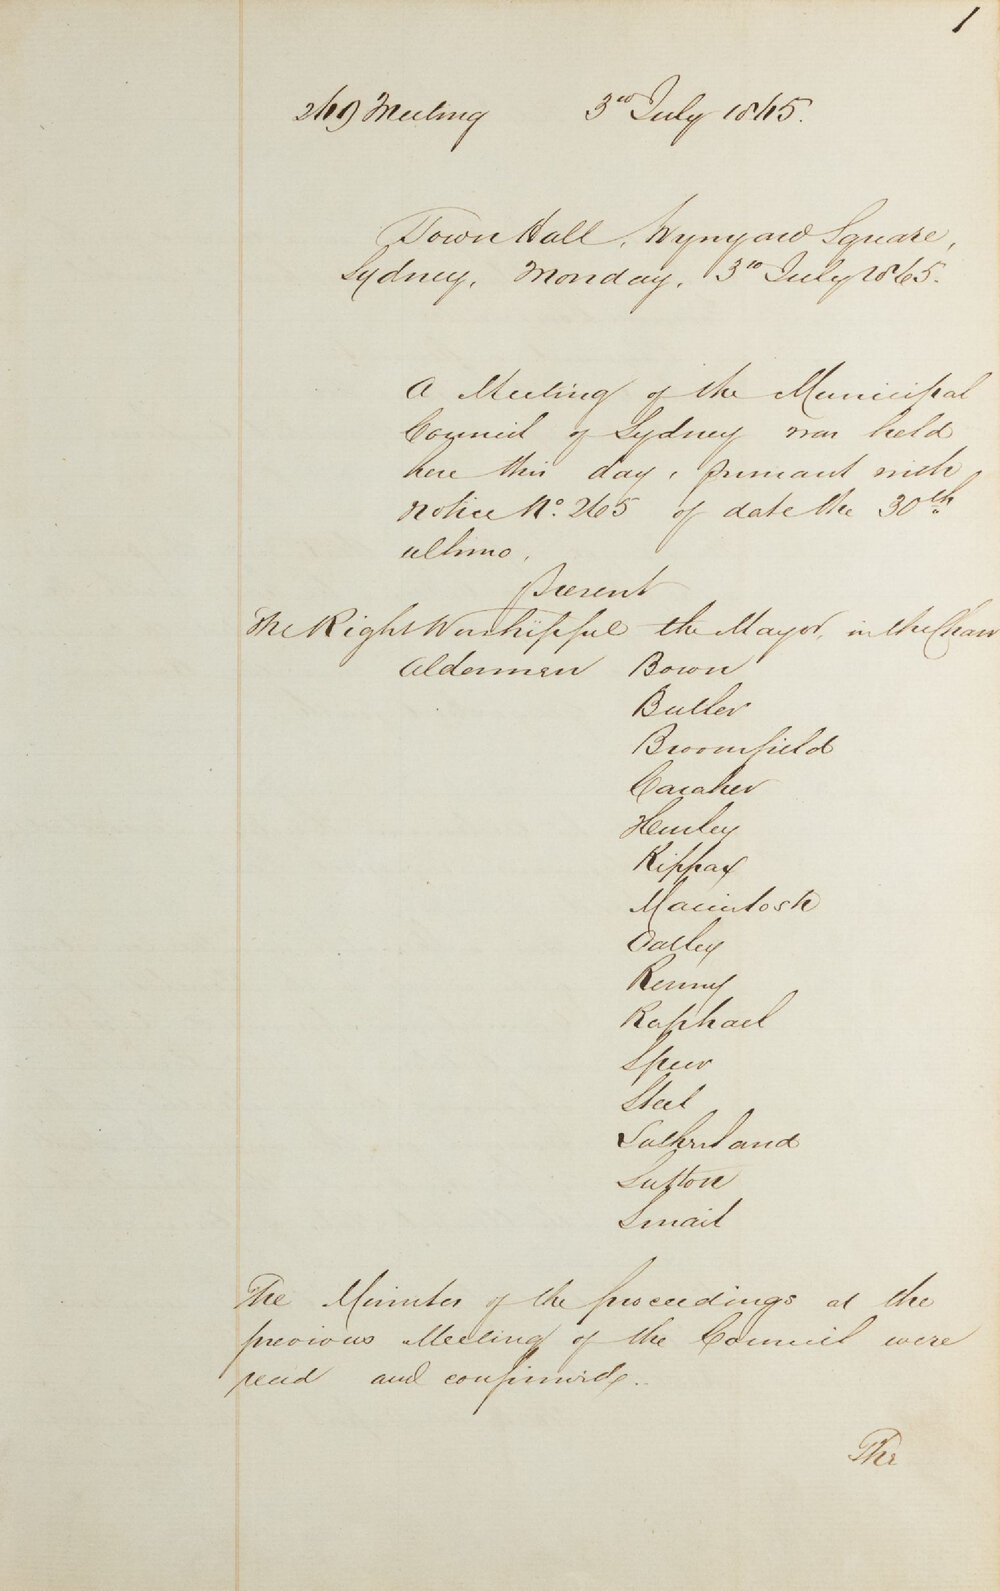 1
269 Meeting 3rd July 1865.
Town Hall, Wynyard Square,
Sydney, Monday, 3rd July 1865.
A Meeting of the Municipal
Council of Sydney was held
here this day, pursuant with
notice No. 265 of date the 30th
ultimo.
Present
The Right Worshipful the Mayor, in the Chair
Aldermen Bown
Butler
Broomfield
Caraher
Hurley
Kippax
Macintosh
Oatley
Renny
Raphael
Speer
Steel
Sutherland
Sutton
Smail
The Minutes of the proceedings at the
previous Meeting of the Council were
read and confirmed.
The